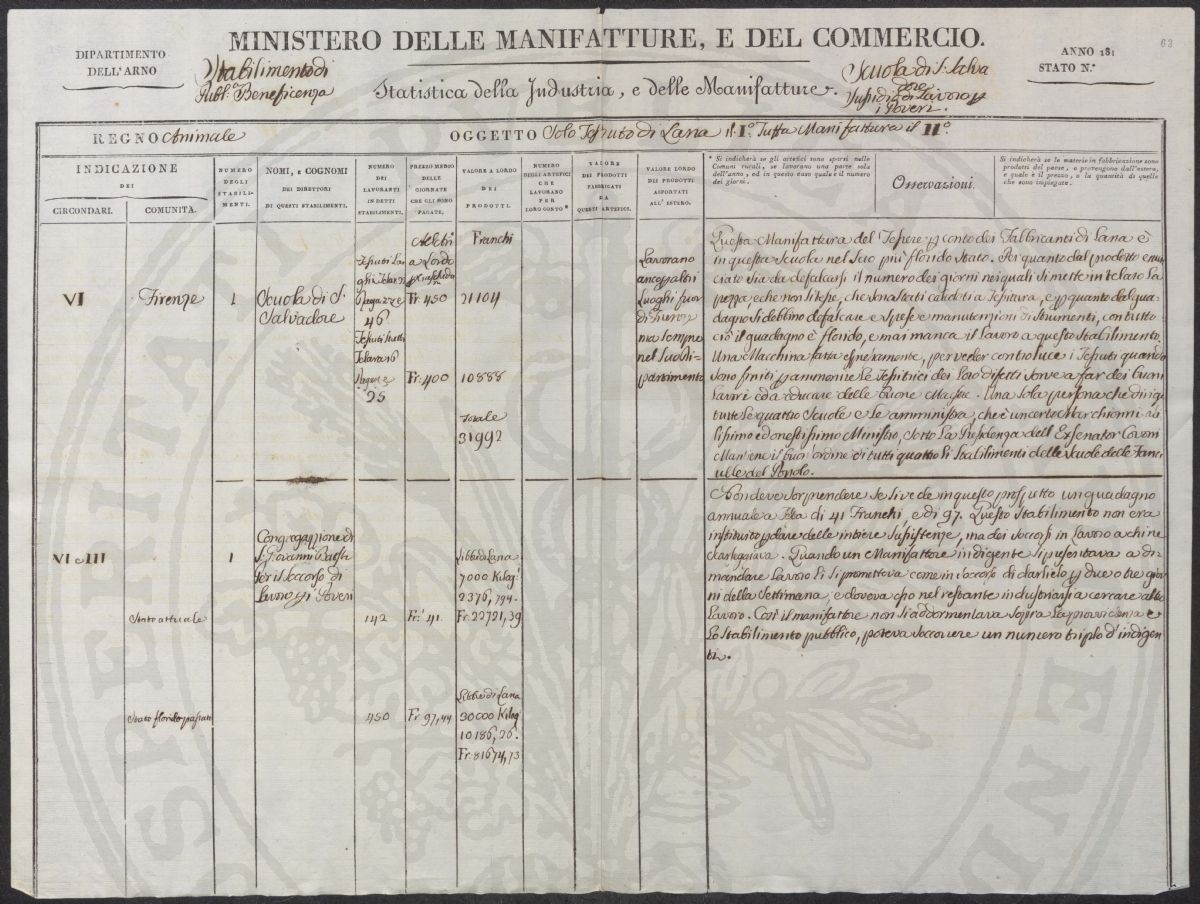 63
MINISTERO DELLE MANIFATTURE, E DEL COMMERCIO.
DIPARTIMENTO
DELL'ARNO
Stabilimento di
Pubb.ª Beneficenza
Statistica della Industria, e delle Manifatture.
Scuola di S. Salva
dore
Sussidio di Lavoro p
i Poveri.
ANNO 181
STATO N.º
REGNO Animale
OGGETTO Solo Tessuto di Lana il I.º Tutta Manifattura il II.º
INDICAZIONE
DEI
CIRCONDARI.
COMUNITÀ.
NUMERO
DEGLI
STABILI-
MENTI.
NOMI, e COGNOMI
DEI DIRETTORI
DI QUESTI STABILIMENTI.
NUMERO
DEI
LAVORANTI
IN DETTI
STABILIMENTI.
PREZZO MEDIO
DELLE
GIORNATE
CHE GLI SONO
PAGATE.
VALORE A LORDO
DEI
PRODOTTI.
NUMERO
DEGLI ARTEFICI
CHE
LAVORANO
PER
LORO CONTO *
VALORE
DEI PRODOTTI
FABBRICATI
DA
QUESTI ARTEFICI.
VALORE LORDO
DEI PRODOTTI
ASPORTATI
ALL' ESTERO.
* Si indicherà se gli artefici sono sparsi nelle
Comuni rurali, se lavorano una parte sola
dell'anno, ed in questo caso quale è il numero
dei giorni.
Osservazioni.
Si indicherà se le materie in fabbricazione sono
prodotti del paese, o provengono dall'estero,
e quale è il prezzo, e la quantità di quelle
che sono impiegate.
VI
Firenze
1
Scuola di S.
Salvadore
Tessuti Lar
ghi Telara 23
Ragazze
46
Tessuti stretti
Telara 16
Ragazze
25
a Lordo
Fr. 450
Fr. 400
Franchi
21104
10888
Totale
31992
Lavorano
anco p altri
Luoghi fuor
di Firenze
ma sempre
nel suo Di-
partimento
Questa Manifattura del Tessere p conto dei Fabbricanti di Lana è
in questa Scuola nel suo più florido Stato. Per quanto dal prodotto enun
ciato sia da defalcarsi il numero dei giorni nei quali si mette in telaro la
pezza, e che non si tesse, che sono stati calcolati a Tessitura, e p quanto dal gua-
dagno si debbino defalcare e spese e manutenzioni di Strumenti, con tutto
ciò il guadagno è florido, e mai manca il Lavoro a questo Stabilimento.
Una Macchina fatta espressamente, per veder contro luce i Tessuti quando
sono finiti p ammonire le Tessitrici dei Loro difetti serve a far dei buoni
Lavori ed a educare delle buone Maestre. Una sola persona che dirige
tutte le quattro Scuole e le amministra, che è un certo Marchionni
ed onestissimo Ministro, sotto La Presidenza dell' Exsenator Covoni
Mantiene il buon'ordine di tutti quattro li Stabilimenti delle Scuole delle Fanci
ulle del Popolo.
VI e III
1
Congregazione di
S. Giovanni Batista
Per il Soccorso di
Lavoro p i Poveri
Libbre di Lana
7000 Kilog.i
2376,794.
Stato attuale
142
Fr. 41.
Fr. 22721,39
Stato florido passato
450
Fr. 97,44
Libbre di Lana
30000 Kilog.i
10186,26.
Fr. 81674,73
Non deve sorprendere se si vede in questo prospetto un guadagno
annuale a Testa di 41 Franchi, e di 97. Questo Stabilimento non era
instituito p dare delle intiere sussistenze, ma dei Soccorsi in Lavoro a chi ne
scarseggiava. Quando un Manifattore indigente si presentava a di-
mandare Lavoro li si prometteva come in soccorso di darglielo p due o tre gior
ni della Settimana, e doveva esso nel restante industriarsi a cercare altro
Lavoro. Così il manifattore non si addormentava sopra La provvidenza e
Lo Stabilimento pubblico, poteva soccorrere un numero triplo d'indigen
ti.